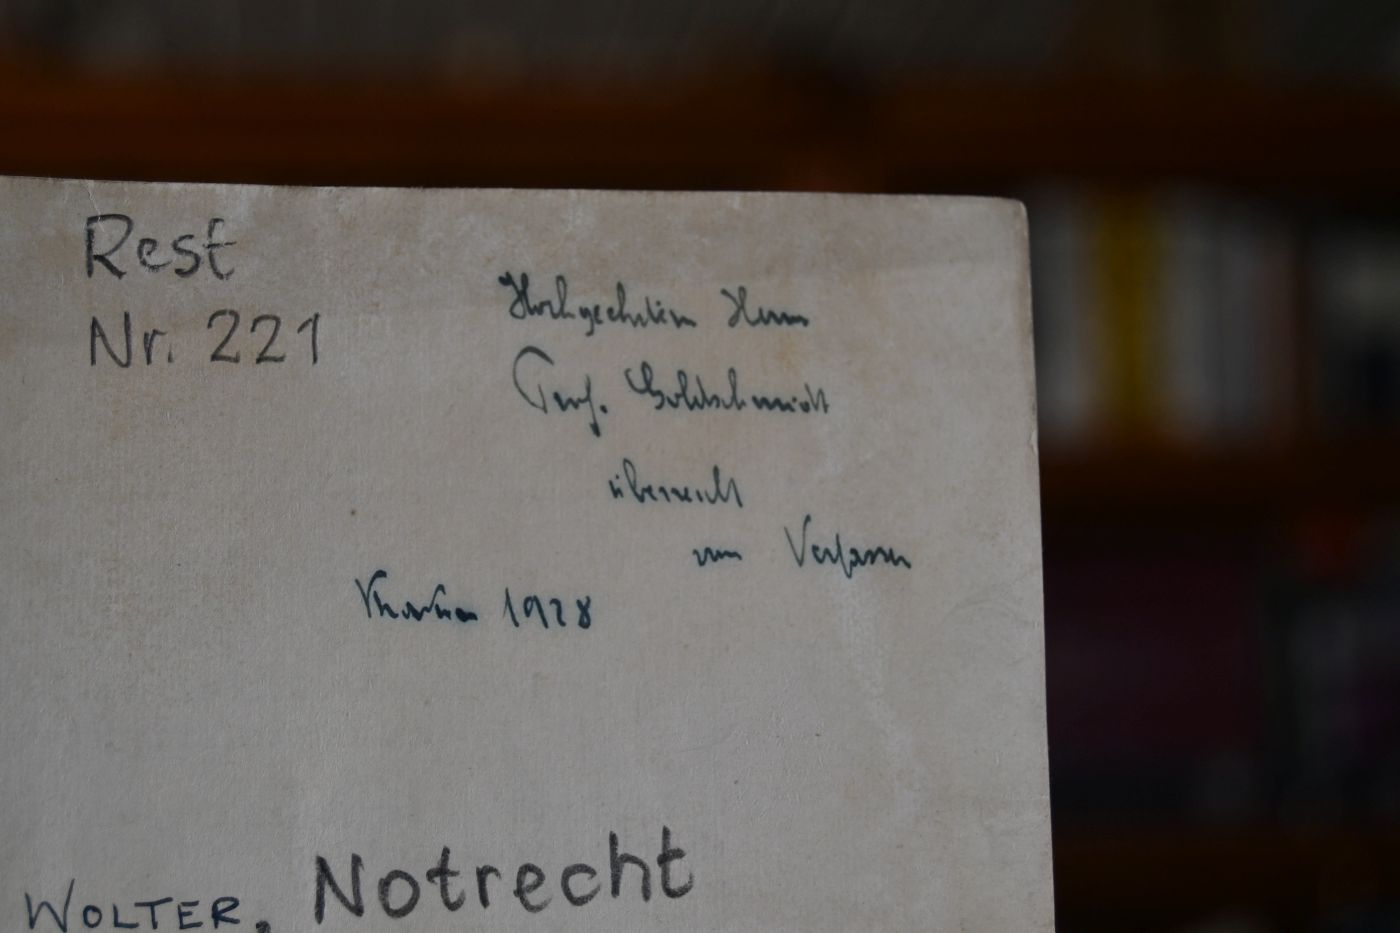 Rest
Nr. 221
Hochgeehrten Herrn
Prof. Goldschmidt
überreicht
vom Verfasser
1928
WOLTER, Notrecht